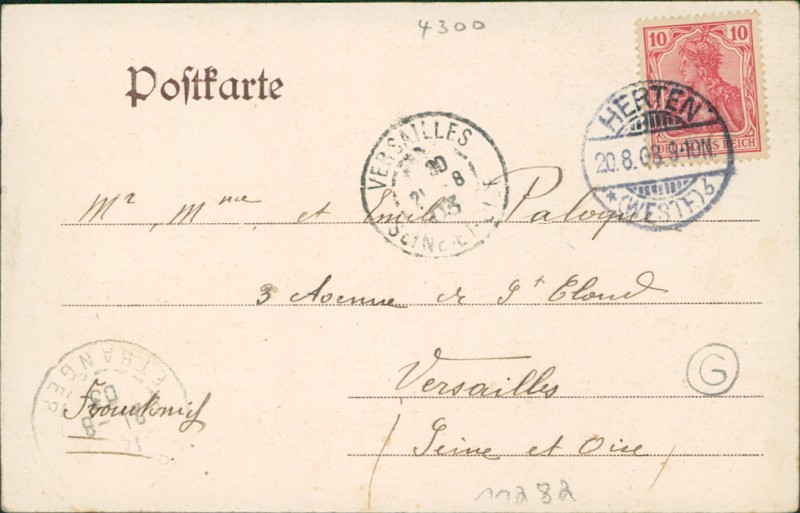 4300
Postkarte
10 10
DEUTSCHES REICH
HERTEN
20.8.03.9-10N.
*(WESTF.)b
VERSAILLES
21 8
03
SEINE-ET-
Mr, Mme et Emile
3 Avenue de St Cloud
Versailles
Seine et Oise
ETRANGER
21 8
03
Frankreich
G
11282